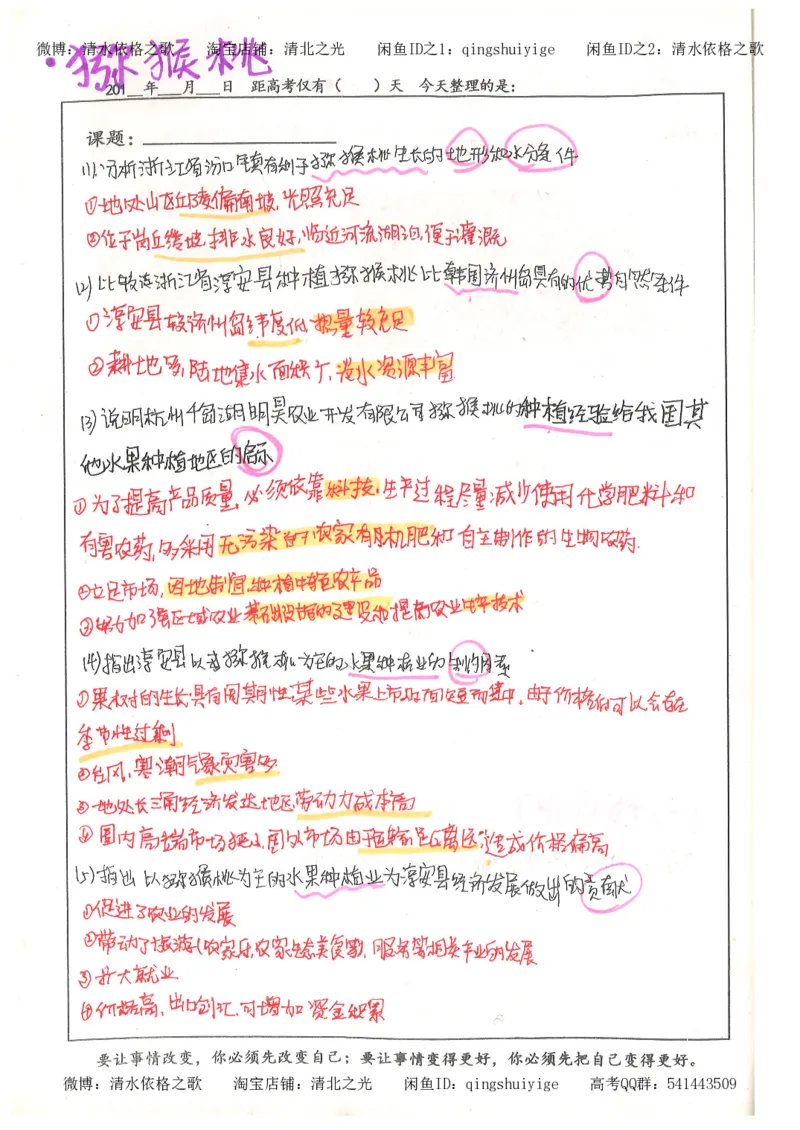 微博：清水依格之歌 淘宝店铺：清北之光 闲鱼ID之1：qingshuiyige 闲鱼ID之2：清水依格之歌
·猕猴桃
201__年___月___日 距高考仅有（ ）天 今天整理的是：
课题：
(1)分析浙江省汾口镇有利于猕猴桃生长的地形和水分条件
①地处山区丘陵偏南坡，光照充足
②位于岗丘缓坡，排水良好，临近河流湖泊，便于灌溉
(2)比较连浙江省淳安县种植猕猴桃比韩国济州岛具有的优势自然条件
①淳安县较济州岛纬度低，热量较充足
②耕地多，陆地集水面积大，淡水资源丰富
(3)说明杭州千岛湖明昊农业开发有限公司猕猴桃的种植经验给我国其
他水果种植地区的启示
①为了提高产品质量，必须依靠科技，生产过程尽量减少使用化学肥料和
有害农药，多采用无污染的农家有机肥和自主制作的生物农药.
②立足市场，因地制宜，种植特色农产品
③努力加强区域农业基础设施的建设和提高农业生产技术
(4)指出淳安县以猕猴桃为主的水果种植业的制约因素
①果树的生长具有周期性，某些水果上市时间短而集中，由于价格等可以会存在
季节性过剩
②台风、寒潮气象灾害多
③地处长三角经济发达地区，劳动力成本高
④国内高端市场狭小，国外市场由于运输距离远，造成价格偏高
(5)指出以猕猴桃为主的水果种植业为淳安县经济发展做出的贡献
①促进了农业的发展
②带动了旅游(农家乐，农家生态美食)，服务等相关产业的发展
③扩大就业
④价格高，出口创汇，可增加资金积累
要让事情改变，你必须先改变自己；要让事情变得更好，你必须先把自己变得更好。
微博：清水依格之歌 淘宝店铺：清北之光 闲鱼ID：qingshuiyige 高考QQ群：541443509